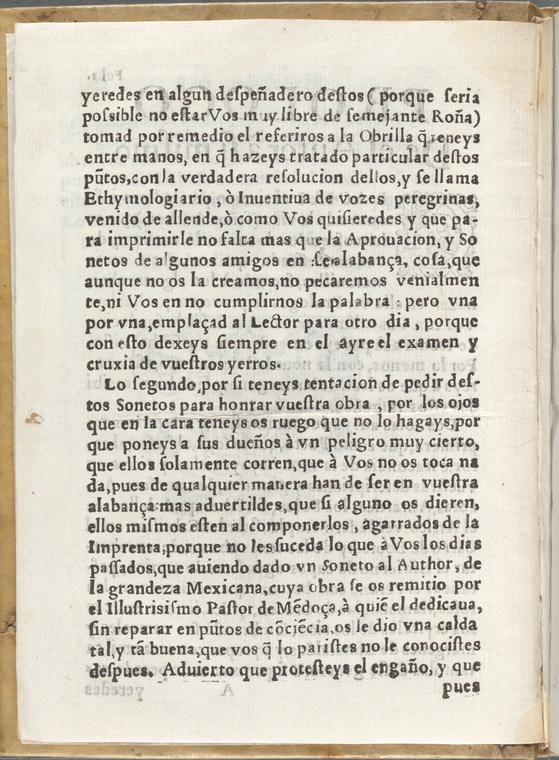 yeredes en algun despeñadero destos ( porque seria
possible no estar Vos muy libre de semejante Roña)
tomad por remedio el referiros a la Obrilla q̃ teneys
entre manos, en q̃ hazeys tratado particular destos
pũtos, con la verdadera resolucion dellos, y se llama
Ethymologiario, ò Inuentiua de vozes peregrinas,
venido de allende, ò como Vos quisieredes y que pa-
ra imprimirle no falta mas que la Aprouacion, y So
netos de algunos amigos en alabança, cosa, que
aunque no os la creamos, no pecaremos venialmen
te, ni Vos en no cumplirnos la palabra : pero vna
por vna, emplaçad al Lector para otro dia, porque
con esto dexeys siempre en el ayre el examen y
cruxia de vuestros yerros.
Lo segundo, por si teneys tentacion de pedir des-
tos Sonetos para honrar vuestra obra, por los ojos
que en la cara teneys os ruego que no lo hagays, por
que poneys a sus dueños à vn peligro muy cierto,
que ellos solamente corren, que à Vos no os toca na
da, pues de qualquier manera han de ser en vuestra
alabança: mas aduertildes, que si alguno os dieren,
ellos mismos esten al componerlos, agarrados de la
Imprenta, porque no les suceda lo que à Vos los dias
passados, que auiendo dado vn Soneto al Author, de
la grandeza Mexicana, cuya obra se os remitio por
el Illustrisismo Pastor de Mẽdoça, à quiẽ el dedicaua,
sin reparar en pũtos de cõciẽcia, os le dio vna calda
tal, y tã buena, que vos q̃ lo paristes no le conocistes
despues. Aduierto que protesteys el engaño, y que
pues